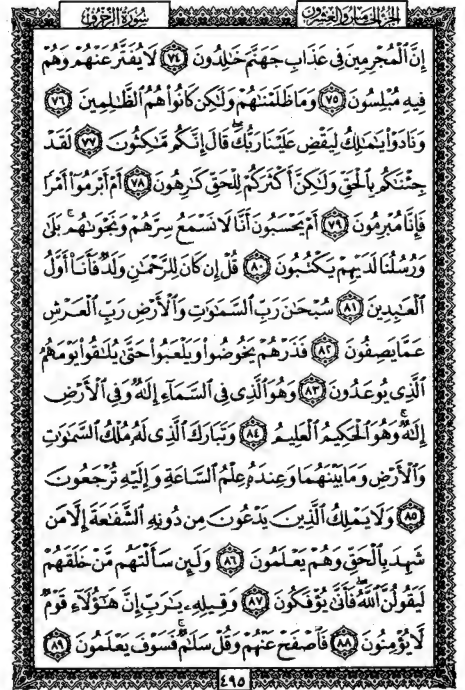 الجزء الخامس والعشرون سورة الزخرف
إِنَّ ٱلۡمُجۡرِمِينَ فِى عَذَابِ جَهَنَّمَ خَـٰلِدُونَ ﴿٧٤﴾ لَا يُفَتَّرُ عَنۡهُمۡ وَهُمۡ
فِيهِ مُبۡلِسُونَ ﴿٧٥﴾ وَمَا ظَلَمۡنَـٰهُمۡ وَلَـٰكِن كَانُواْ هُمُ ٱلظَّـٰلِمِينَ ﴿٧٦﴾
وَنَادَوۡاْ يَـٰمَـٰلِكُ لِيَقۡضِ عَلَيۡنَا رَبُّكَۖ قَالَ إِنَّكُم مَّـٰكِثُونَ ﴿٧٧﴾ لَقَدۡ
جِئۡنَـٰكُم بِٱلۡحَقِّ وَلَـٰكِنَّ أَكۡثَرَكُمۡ لِلۡحَقِّ كَـٰرِهُونَ ﴿٧٨﴾ أَمۡ أَبۡرَمُوٓاْ أَمۡرٗا
فَإِنَّا مُبۡرِمُونَ ﴿٧٩﴾ أَمۡ يَحۡسَبُونَ أَنَّا لَا نَسۡمَعُ سِرَّهُمۡ وَنَجۡوَىٰهُمۚ بَلَىٰ
وَرُسُلُنَا لَدَيۡهِمۡ يَكۡتُبُونَ ﴿٨٠﴾ قُلۡ إِن كَانَ لِلرَّحۡمَـٰنِ وَلَدٞ فَأَنَا۠ أَوَّلُ
ٱلۡعَـٰبِدِينَ ﴿٨١﴾ سُبۡحَـٰنَ رَبِّ ٱلسَّمَـٰوَٰتِ وَٱلۡأَرۡضِ رَبِّ ٱلۡعَرۡشِ
عَمَّا يَصِفُونَ ﴿٨٢﴾ فَذَرۡهُمۡ يَخُوضُواْ وَيَلۡعَبُواْ حَتَّىٰ يُلَـٰقُواْ يَوۡمَهُمُ
ٱلَّذِى يُوعَدُونَ ﴿٨٣﴾ وَهُوَ ٱلَّذِى فِى ٱلسَّمَآءِ إِلَـٰهٞ وَفِى ٱلۡأَرۡضِ
إِلَـٰهٞۚ وَهُوَ ٱلۡحَكِيمُ ٱلۡعَلِيمُ ﴿٨٤﴾ وَتَبَارَكَ ٱلَّذِى لَهُۥ مُلۡكُ ٱلسَّمَـٰوَٰتِ
وَٱلۡأَرۡضِ وَمَا بَيۡنَهُمَا وَعِندَهُۥ عِلۡمُ ٱلسَّاعَةِ وَإِلَيۡهِ تُرۡجَعُونَ
﴿٨٥﴾ وَلَا يَمۡلِكُ ٱلَّذِينَ يَدۡعُونَ مِن دُونِهِ ٱلشَّفَـٰعَةَ إِلَّا مَن
شَهِدَ بِٱلۡحَقِّ وَهُمۡ يَعۡلَمُونَ ﴿٨٦﴾ وَلَئِن سَأَلۡتَهُم مَّنۡ خَلَقَهُمۡ
لَيَقُولُنَّ ٱللَّهُۖ فَأَنَّىٰ يُؤۡفَكُونَ ﴿٨٧﴾ وَقِيلِهِۦ يَـٰرَبِّ إِنَّ هَـٰٓؤُلَآءِ قَوۡمٞ
لَّا يُؤۡمِنُونَ ﴿٨٨﴾ فَٱصۡفَحۡ عَنۡهُمۡ وَقُلۡ سَلَـٰمٞۚ فَسَوۡفَ يَعۡلَمُونَ ﴿٨٩﴾
٤٩٥